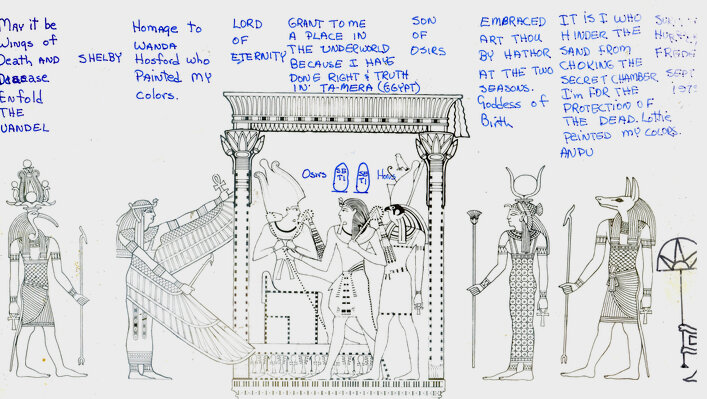 MAY it be
Wings of
Death AND
Desease
ENfold
THE
VANDEL
SHELBY
Homage to
WANDA
Hosford who
Painted my
colors.
LORD
OF
ETERNITY
GRANT TO ME
A PLACE IN
THE UNDERWORLD
BECAUSE I HAVE
DONE RIGHT & TRUTH
IN TA-MERA (EGYPT)
SON
OF
OSIRS
EMBRACED
ART THOU
BY HATHOR
AT THE TWO
SEASONS.
Goddess of
Birth
IT IS I WHO
HINDER THE
SAND FROM
CHOKING THE
SECRET CHAMBER
I'm FOR THE
PROTECTION OF
THE DEAD. Lottie
PEINTED MY COLORS.
ANPU
SEPT
Osirs